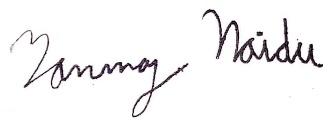 Tanmay Naidu